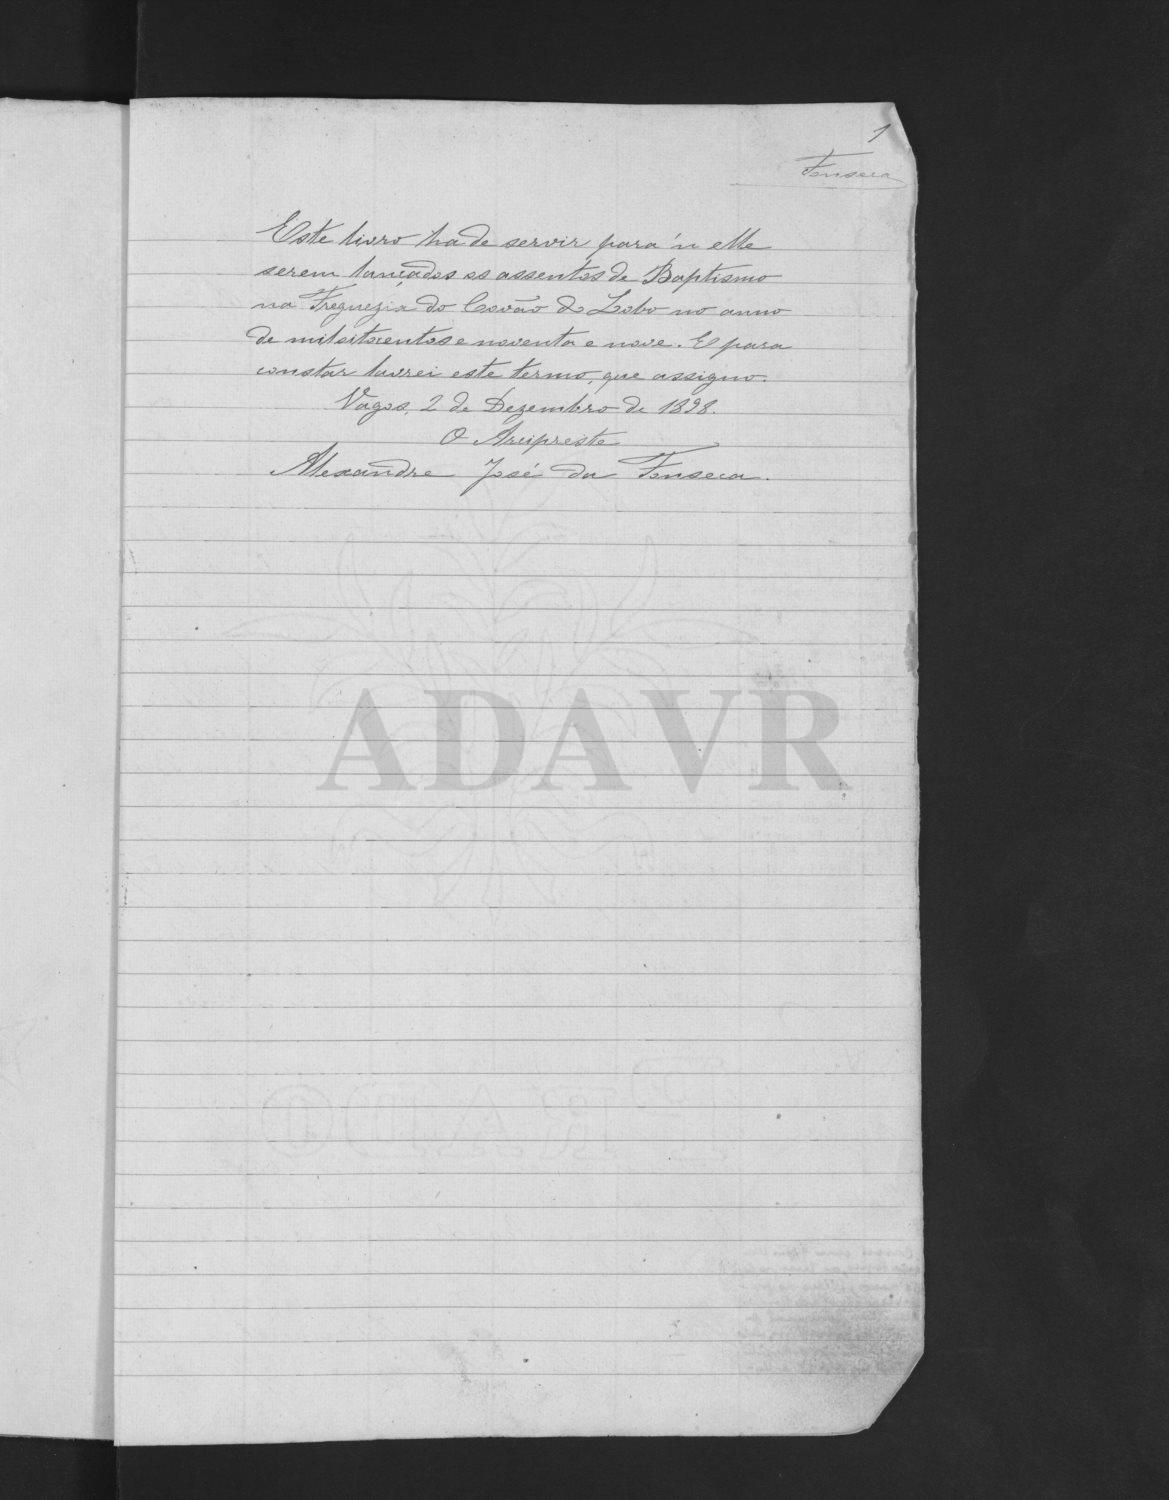 1
Fonseca
Este livro ha de servir para n'elle
serem lançados os assentos de Baptismo
na Freguezia do Covão do Lobo no anno
de mil oitocentos e noventa e nove. E para
constar lavrei este termo, que assigno.
Vagos, 2 de Dezembro de 1898.
O Arcipreste
Alexandre José da Fonseca.
ADAVR